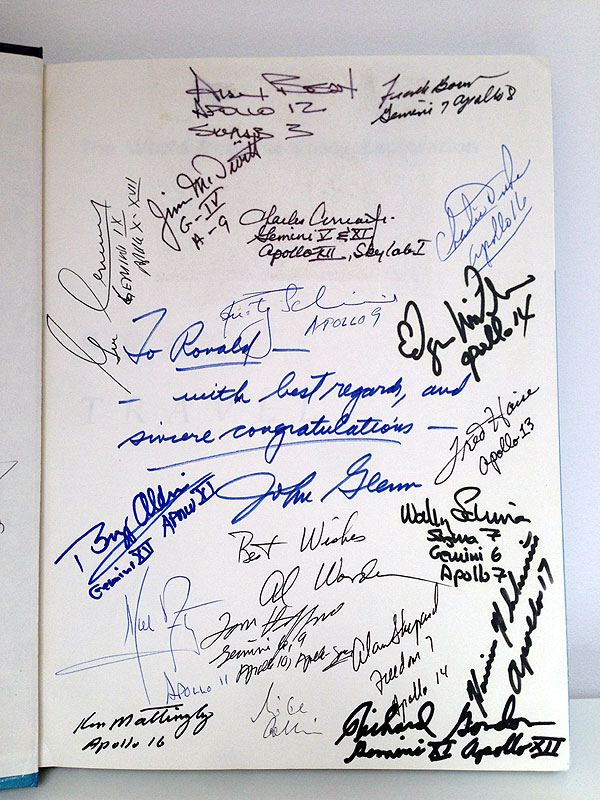 Alan Bean
APOLLO 12
SKYLAB 3
Frank Borman
Gemini 7 Apollo 8
Jim McDivitt
G-IV
A-9
Charles Conrad Jr.
Gemini V & XI
Apollo XII, Skylab I
Charlie Duke
Apollo 16
Gene Cernan
GEMINI IX
APOLLO X-XVII
Rusty Schweickart
APOLLO 9
Edgar Mitchell
Apollo 14
To Ronald —
— with best regards, and
sincere congratulations —
John Glenn
Fred Haise
Apollo 13
Buzz Aldrin
Gemini XII APOLLO XI
Wally Schirra
Sigma 7
Gemini 6
Apollo 7
Best Wishes
Al Worden
Neil Armstrong
APOLLO 11
Tom Stafford
Gemini 6, 9
Apollo 10,
Alan Shepard
Freedom 7
Apollo 14
Apollo 17
Ken Mattingly
Apollo 16
Mike Collins
Richard Gordon
Gemini XI Apollo XII
TRAVEL